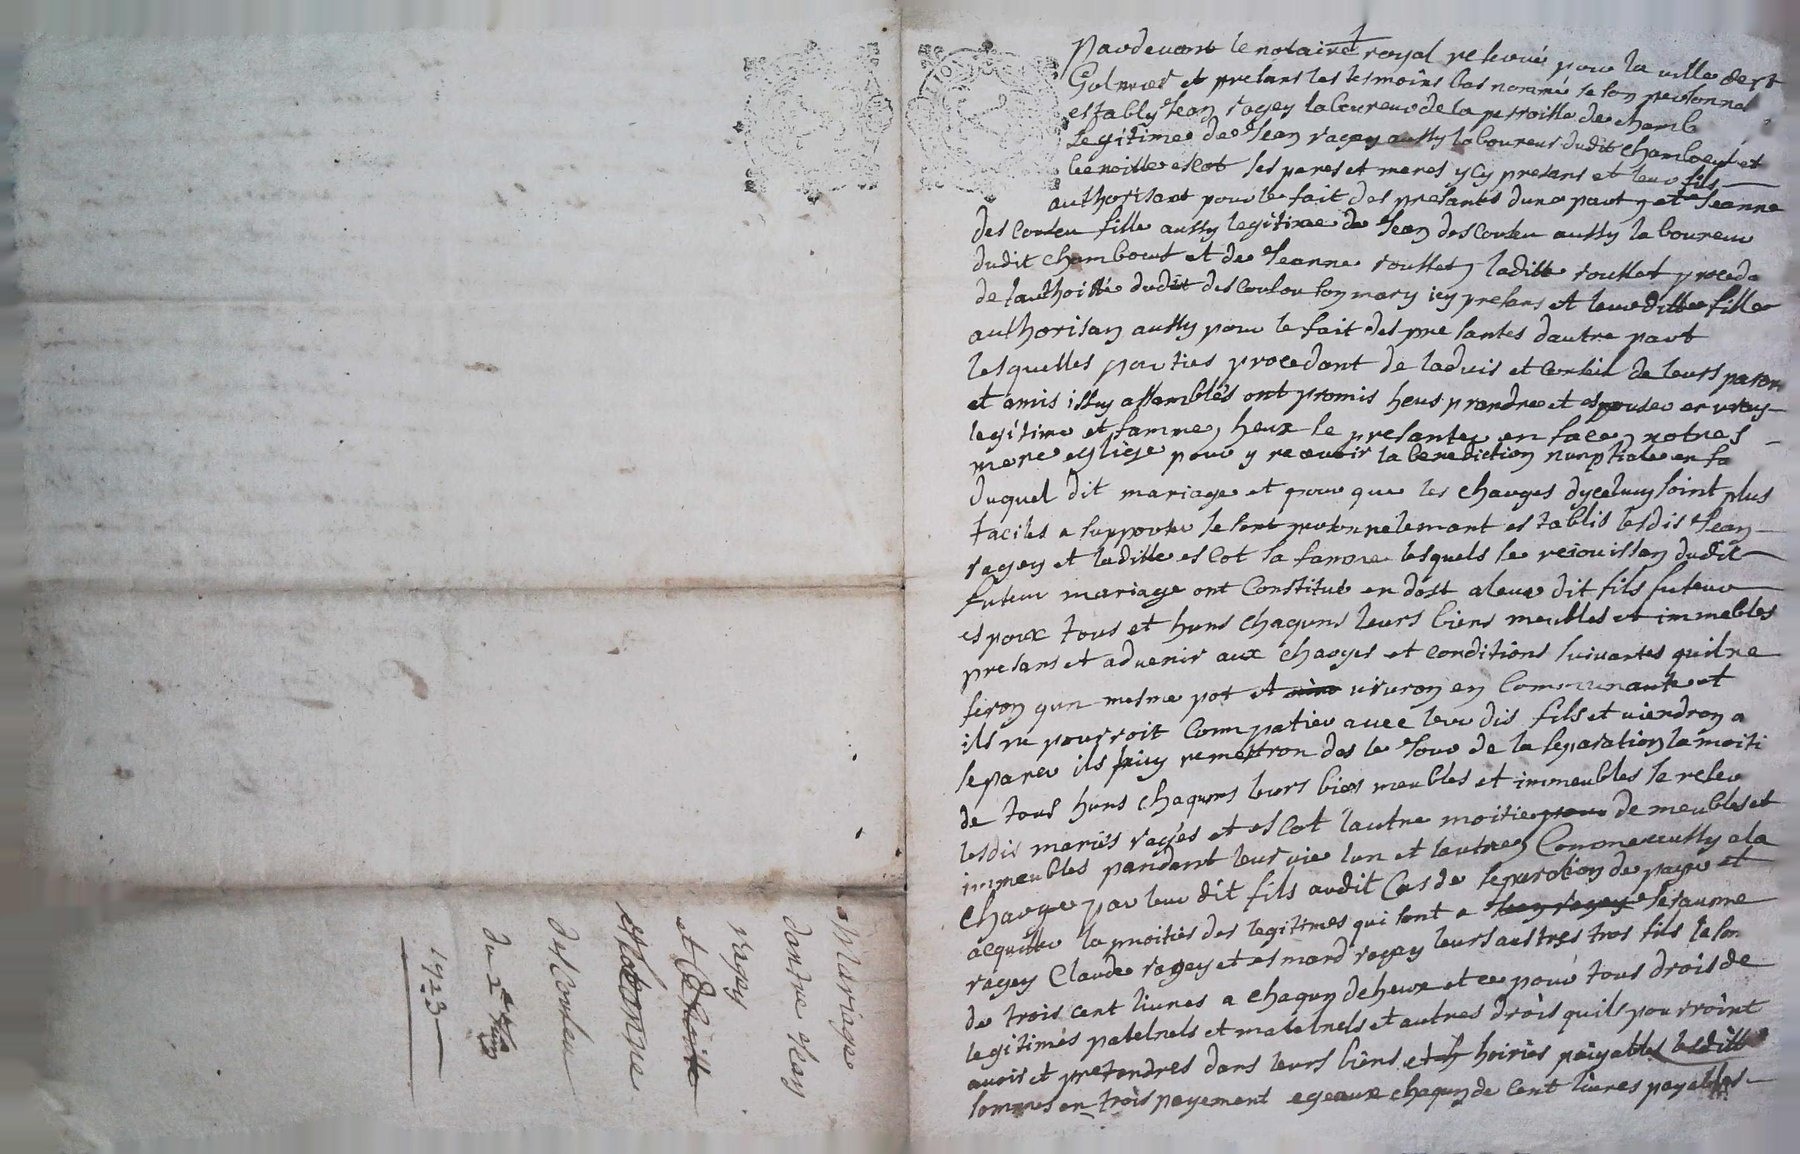 Mariage
dantre Jean
ragey
et
Jeanne
descouleu
du 2e
1723
pardevant le notaire royal reservé pour la ville de st
Galmier et presans les tesmoins bas nommé se son personnel
estably Jean ragey laboureur de la perroisse de chamb
legitime de Jean ragey aussy laboureur dudit chamboeuf et
benoitte escot ses peres et meres ycy presans et leur fils
authorisant pour le fait des presantes dune part, et Jeanne
descouleu fille aussy legitime de Jean descouleu aussy laboureur
dudit chambout et de Jeanne rousset, laditte rousset procedа
de lauthoitté dudit descouleu son mary icy presans et leur ditte fille
authorisan aussy pour le fait des presantes dautre part
lesquelles parties procedant de laduis et conseil de leurs paran
et amis issy assemblés ont promis heus prandre et espouser en vray
legitime et famme, heux se presanter en face notre s
mere esglise pour y recevoir la benediction nunptiale en fa
duquel dit mariage et pour que les charges dycelluy soint plus
facilles a supporter se sont personnelemant establis lesdis Jean
ragey et laditte escot sa famme lesquels se rejouissan dudit
futeur mariage ont constitué en dost a leur dit fils futeur
espoux tous et huns chaquns leurs biens meubles et immebles
presans et advenir aux charges et conditions suivantes quil ne
feron qun mesme pot et vivron en communauté et
ils ne pourroit compatir avec leur dis fils et viendron a
separer ils luy remettron des le Jour de la separation la moiti
de tous huns chaquns leurs bien meubles et immeubles se reser
lesdis mariés ragés et escot lautre moitie de meubles et
immeubles pandant leur vie lun et lautre, Comme aussy a la
charge par leur dit fils audit cas de separation de payer et
acquitter la moitié des legitimes qui sont a Jean ragey Jesaume
ragey Claude ragey et esmard ragey leurs austres tros fils la som
de trois cent livres a chaqun de heux et ce pour tous drois de
legitimes patelnels et matelnels et autres drois quils pourroint
avoir et pretandres dans leurs biens et hoiries payables lesditte
sommes en trois payement egeaux chaqun de cent livres payables